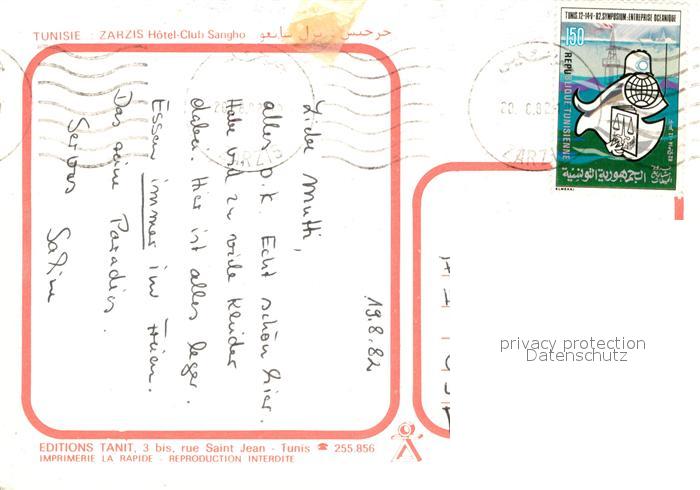 TUNISIE : ZARZIS Hôtel-Club Sangho جرجيس نزل سانغو
TUNIS.12-14-V-82.SYMPOSIUM-ENTREPRISE OCEANIQUE
150
REPUBLIQUE TUNISIENNE
الجمهورية التونسية
ZARZIS
19.8.82
Liebe Mutti,
alles o.k. Echt schön hier.
Habe viel zu viele Kleider
dabei. Hier ist alles leger.
Essen immer im Freien.
Das reine Paradies.
Servus
Sabine
EDITIONS TANIT, 3 bis, rue Saint Jean - Tunis ☎ 255.856
IMPRIMERIE LA RAPIDE - REPRODUCTION INTERDITE
privacy protection
Datenschutz